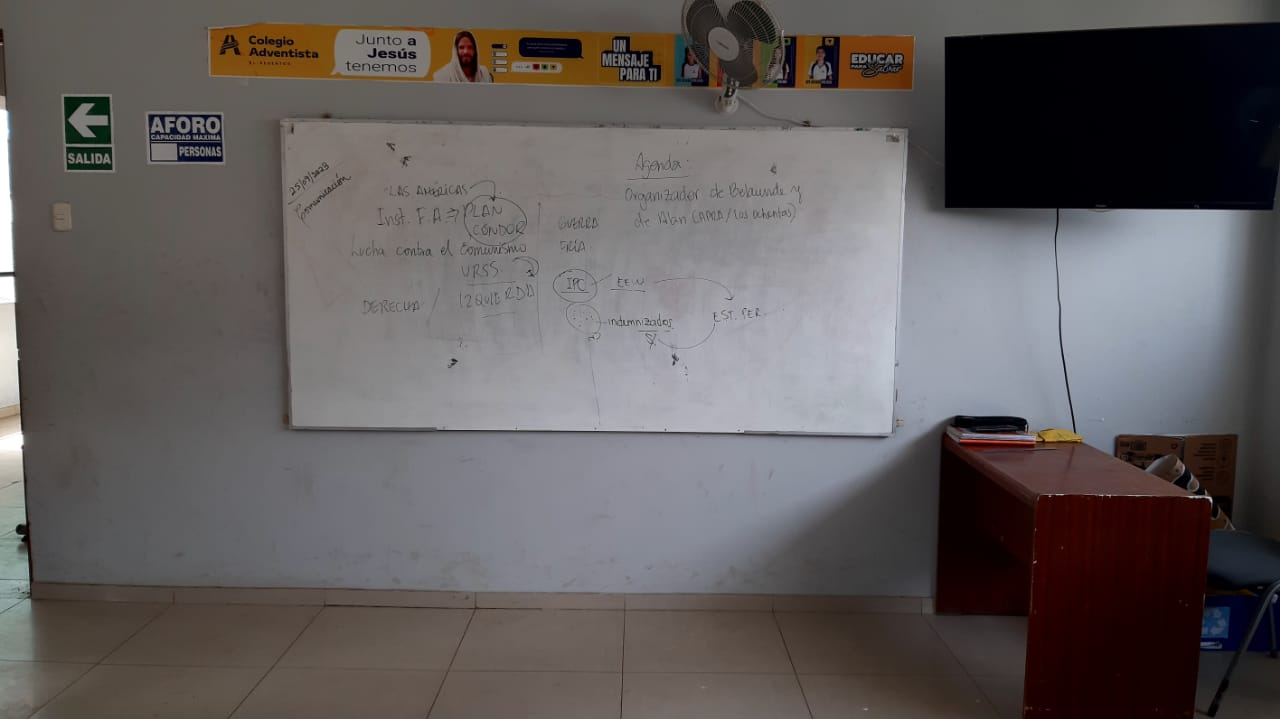 Colegio
Adventista
Junto a
Jesús
tenemos
UN
MENSAJE
PARA TI
EDUCAR
PARA Salvar
SALIDA
AFORO
CAPACIDAD MAXIMA
PERSONAS
25/09/2023
Comunicación
LAS AMÉRICAS
Inst. F.A → PLAN
CÓNDOR
Lucha contra el Comunismo
URSS
DERECHA / IZQUIERDA
GUERRA
FRÍA
IPC
EEUU
indemnizados
EST. PER.
Agenda:
Organizador de Belaunde y
de Alan (APRA/los ochentas)